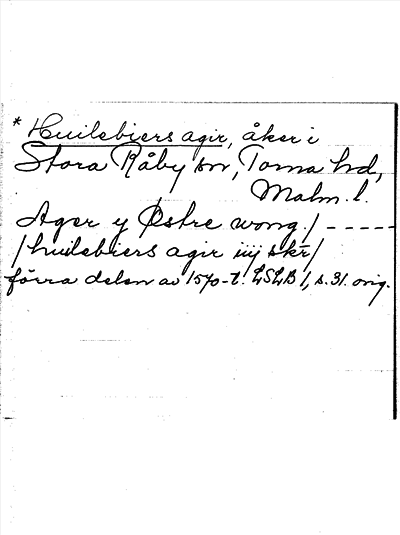 * Huilsbiers agir, åker i
Stora Råby sn, Torna hd,
Malm. l.
Ager y Østre wong. / -----
/ huilsbiers agir iiij skr /
förra delen av 1570-t. LSLB 1, s. 31. orig.